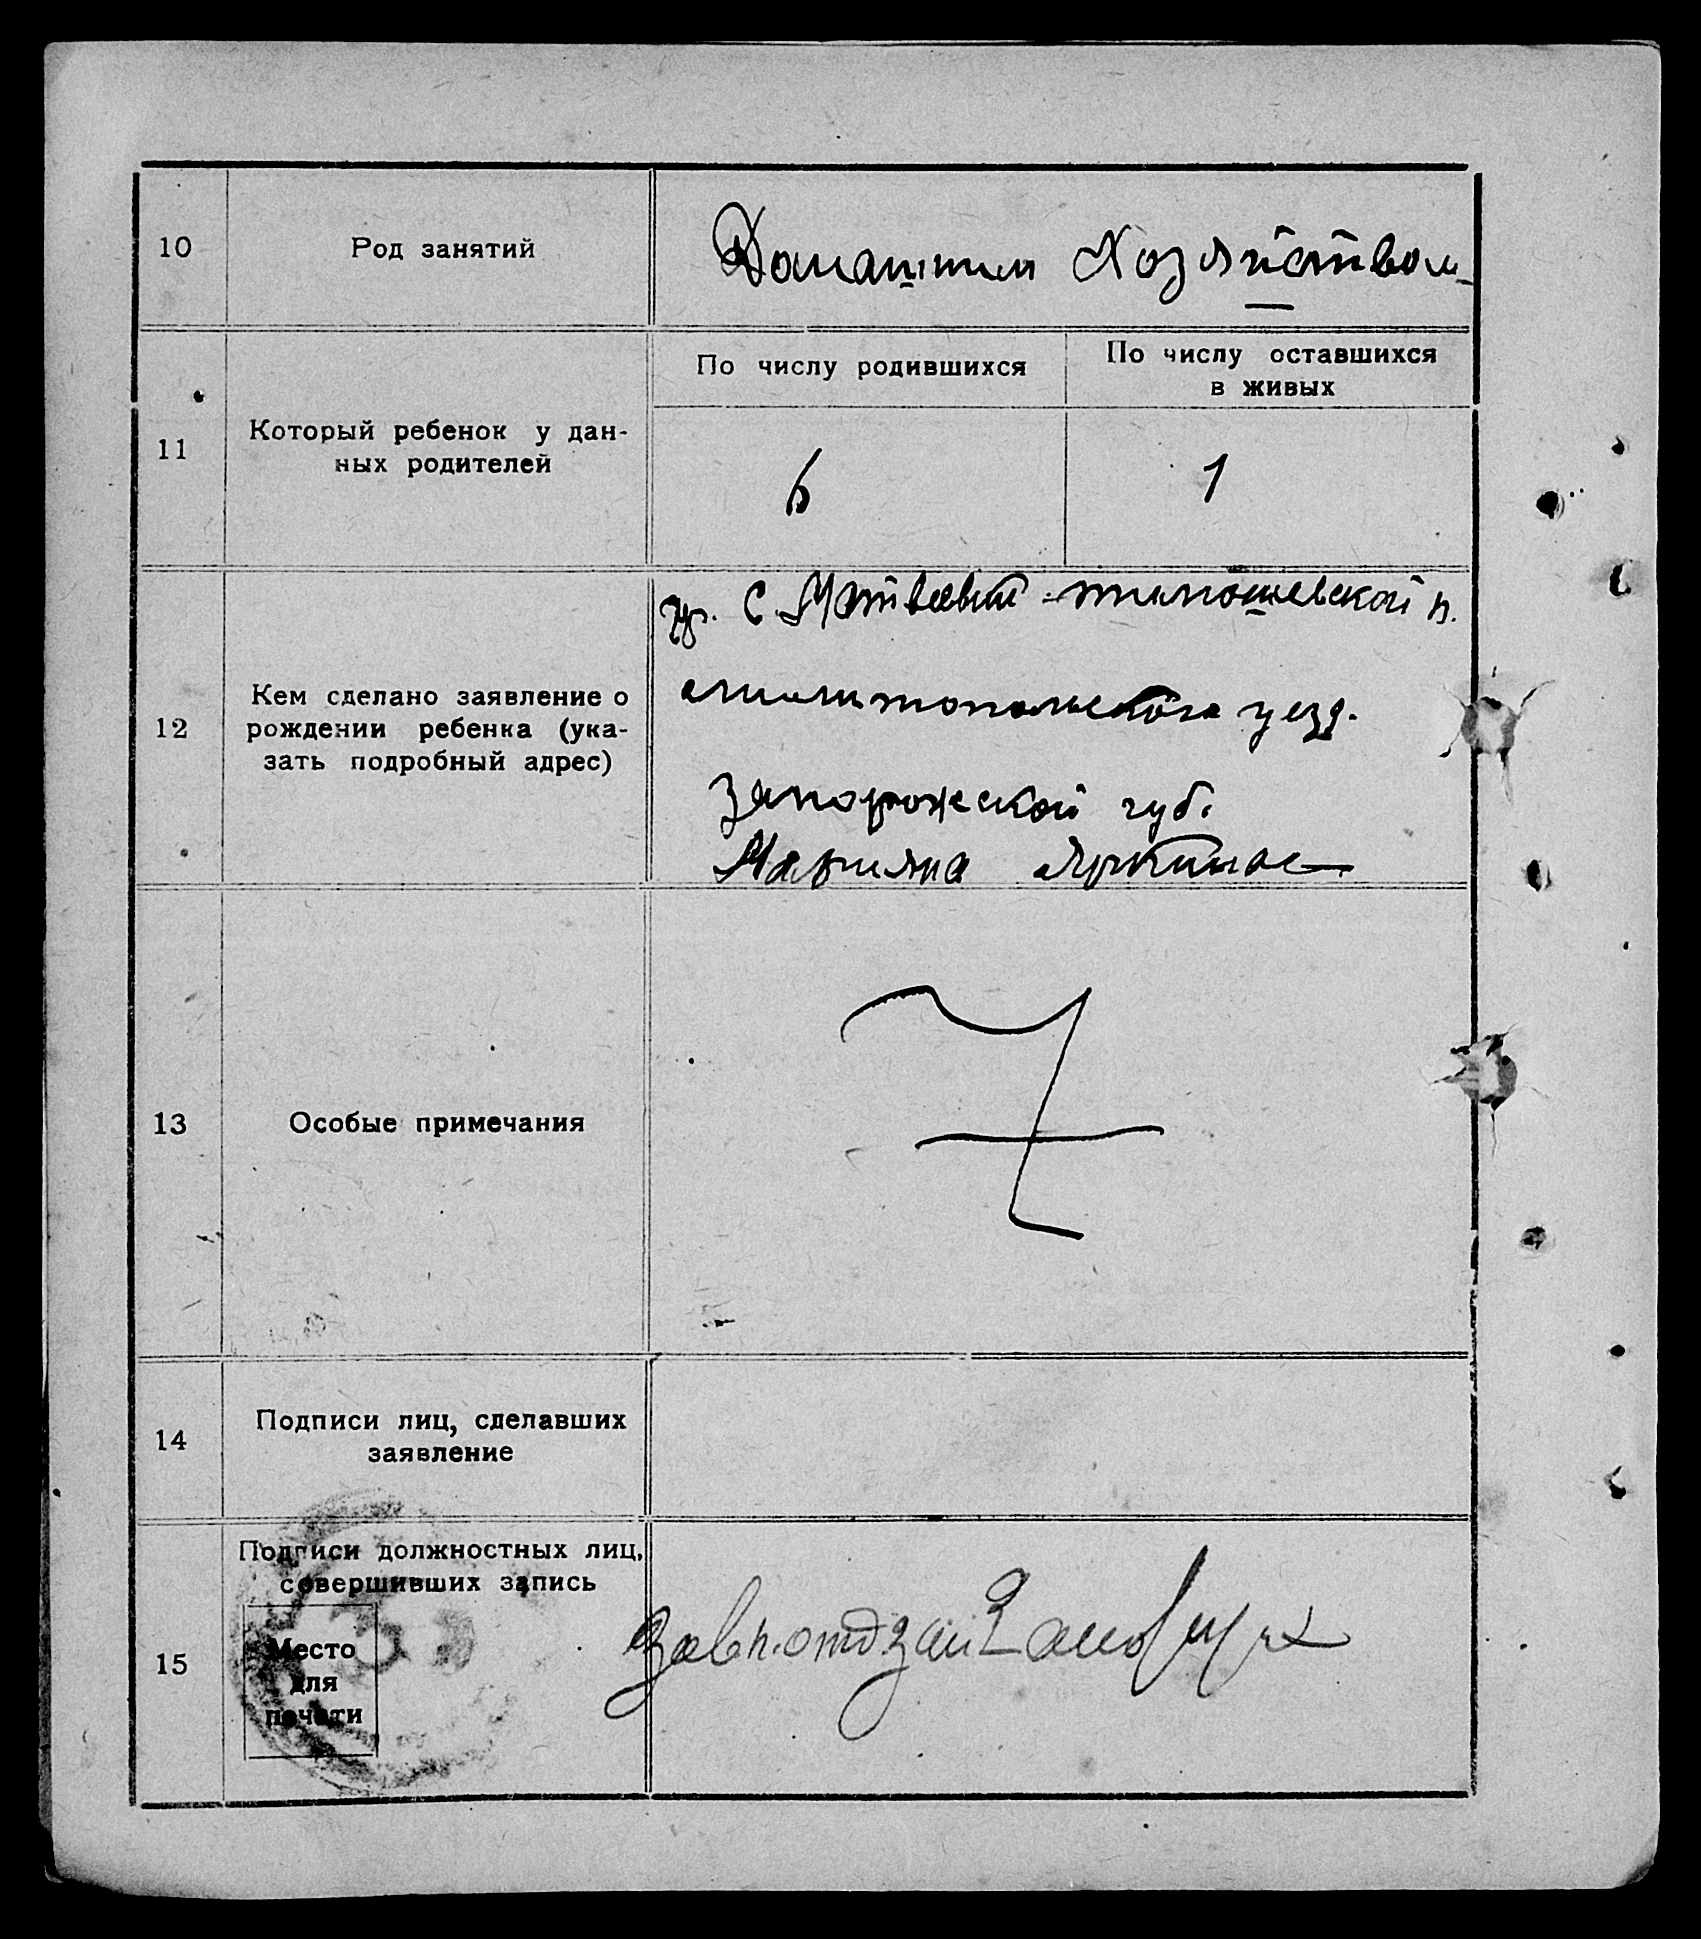 10
Род занятий
Домашним Хозяйством
11
Который ребенок у дан-
ных родителей
По числу родившихся
По числу оставшихся
в живых
6
1
12
Кем сделано заявление о
рождении ребенка (ука-
зать подробный адрес)
гр. С. Матвеевки Тимошевской в.
Мелитопольского уезд.
Запорожской губ.
Марияна
13
Особые примечания
14
Подписи лиц, сделавших
заявление
15
Подписи должностных лиц,
совершивших запись
Место
для
печати